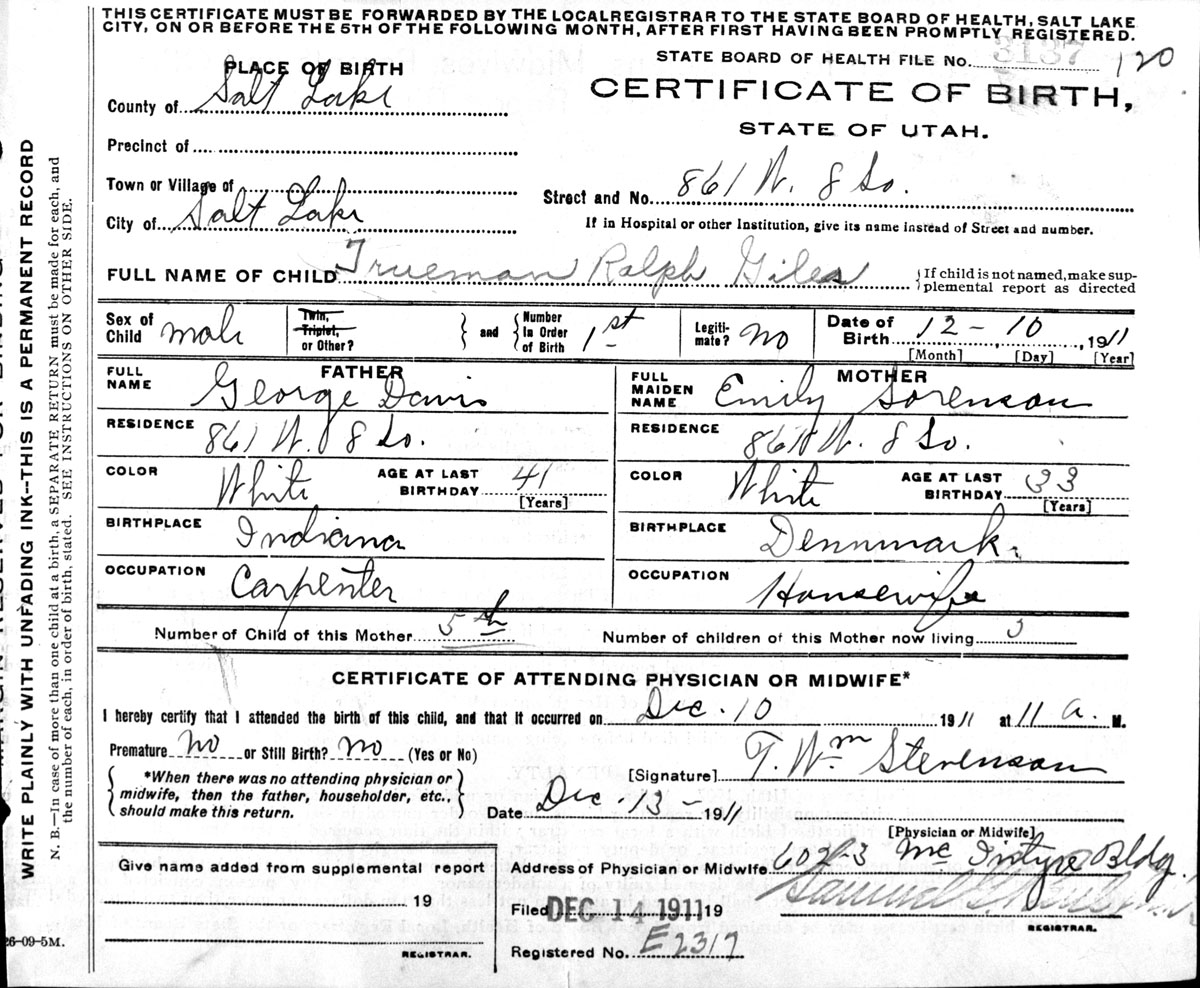 THIS CERTIFICATE MUST BE FORWARDED BY THE LOCAL REGISTRAR TO THE STATE BOARD OF HEALTH, SALT LAKE
CITY, ON OR BEFORE THE 5TH OF THE FOLLOWING MONTH, AFTER FIRST HAVING BEEN PROMPTLY REGISTERED.
STATE BOARD OF HEALTH FILE No. 3137 120
PLACE OF BIRTH
CERTIFICATE OF BIRTH,
County of Salt Lake
STATE OF UTAH.
Precinct of
Town or Village of
Street and No. 861 W. 8 So.
City of Salt Lake
If in Hospital or other Institution, give its name instead of Street and number.
FULL NAME OF CHILD Trueman Ralph Giles
If child is not named, make sup-
plemental report as directed
Sex of Child male
Twin, Triplet, or Other?
and
Number In Order of Birth 1st
Legiti-mate? No
Date of Birth 12-10, 1911
[Month] [Day] [Year]
FATHER
FULL NAME George Davis
MOTHER
FULL MAIDEN NAME Emily Sorenson
RESIDENCE 861 W. 8 So.
RESIDENCE 861 W. 8 So.
COLOR White AGE AT LAST BIRTHDAY 41 [Years]
COLOR White AGE AT LAST BIRTHDAY 33 [Years]
BIRTHPLACE Indiana
BIRTHPLACE Dennmark.
OCCUPATION Carpenter
OCCUPATION Housewife
Number of Child of this Mother 5th
Number of children of this Mother now living 3
CERTIFICATE OF ATTENDING PHYSICIAN OR MIDWIFE*
I hereby certify that I attended the birth of this child, and that it occurred on Dec. 10 1911 at 11 a. M.
Premature No or Still Birth? No (Yes or No)
*When there was no attending physician or
midwife, then the father, householder, etc.,
should make this return.
[Signature] T. Wm Stevenson
Date Dec. 13 - 1911
[Physician or Midwife]
Give name added from supplemental report
19
REGISTRAR.
Address of Physician or Midwife 602-3 McIntyre Bldg.
Filed DEC 14 1911 19
REGISTRAR.
Registered No. E2317
26-09-5M.
WRITE PLAINLY WITH UNFADING INK--THIS IS A PERMANENT RECORD
N. B.—In case of more than one child at a birth, a SEPARATE RETURN must be made for each, and
the number of each, in order of birth, stated. SEE INSTRUCTIONS ON OTHER SIDE.